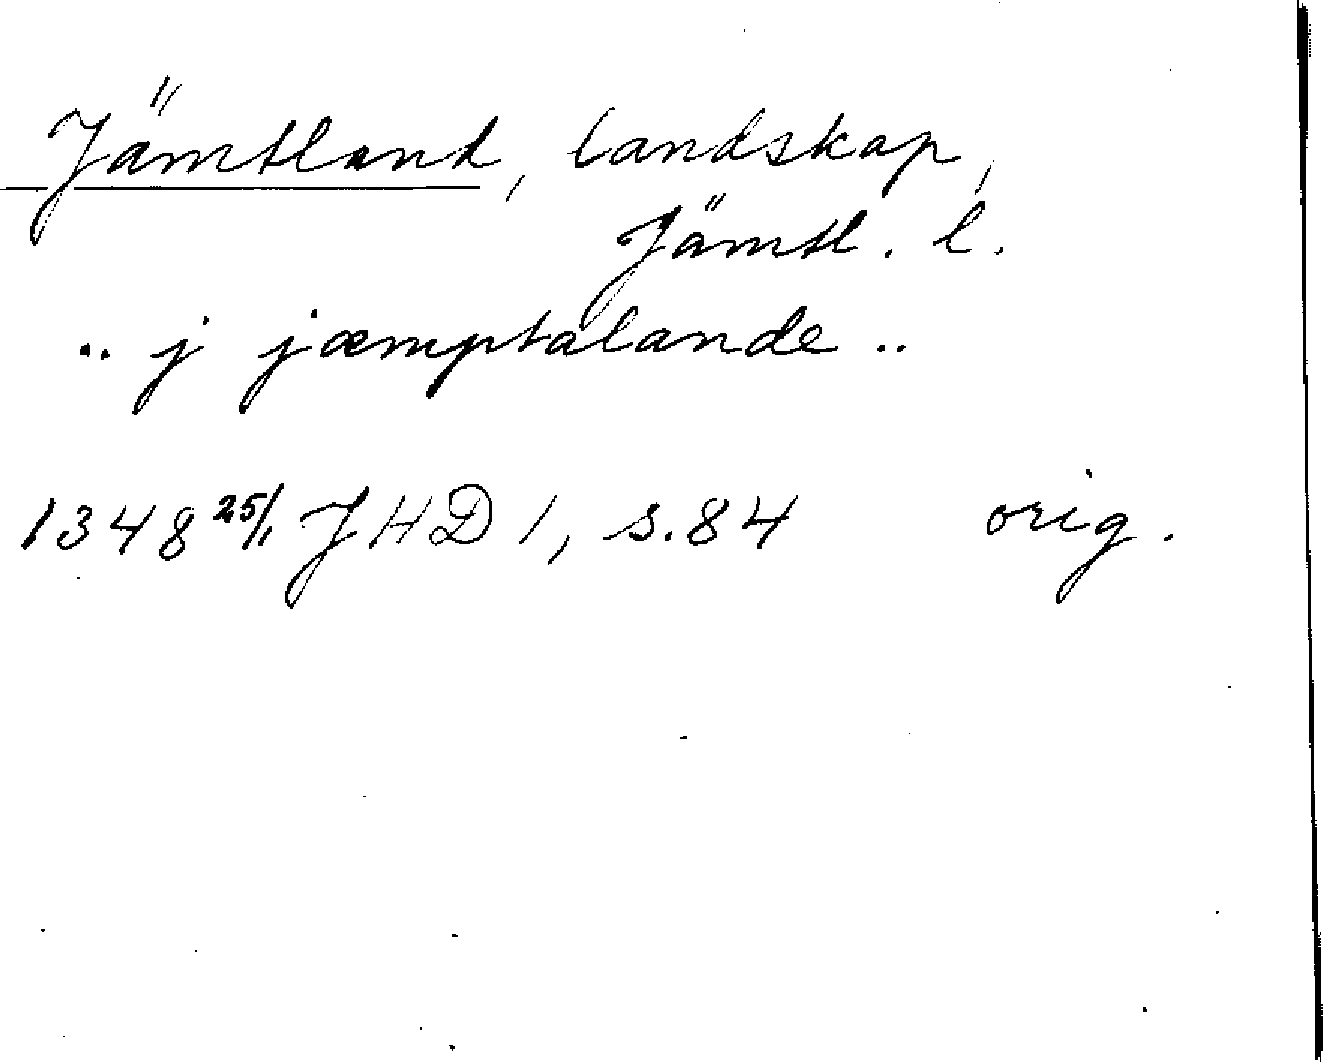 Jämtland, landskap,
Jämtl. l.
.. j jæmptalande ..
1348 25/1 JHD 1, s. 84 orig.